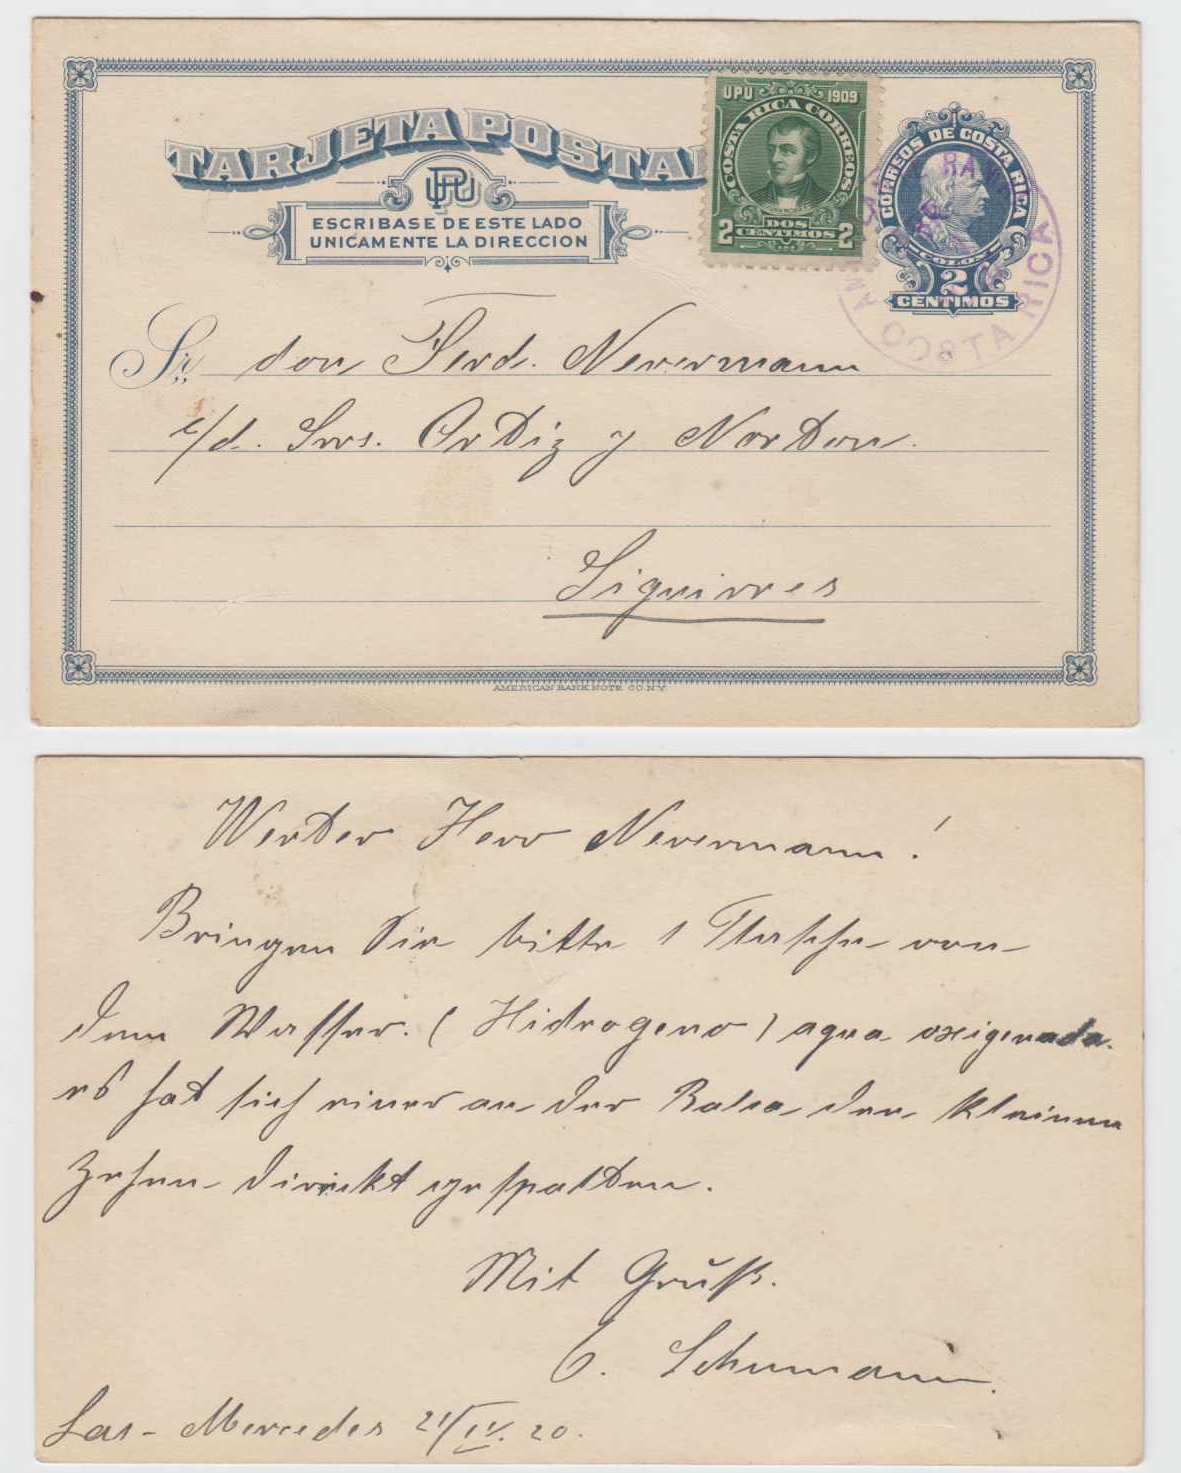 TARJETA POSTAL
UPU
ESCRIBASE DE ESTE LADO
UNICAMENTE LA DIRECCION
UPU 1909
COSTA RICA CORREOS
2 DOS CENTIMOS 2
CORREOS DE COSTA RICA
COLON
2
CENTIMOS
COSTA RICA
Sr. don Ferd. Nevermann
c/d. Srrs. Ortiz y Norton.
Siquirres
AMERICAN BANK NOTE CO. N.Y.
Werter Herr Nevermann!
Bringen Sie bitte 1 Flasche von
dem Wasser. (Hidrogeno) agua oxigenada.
es hat sich einer an der Balsa den kleinen
Zehen direkt gespalten.
Mit Gruß.
C. Schumann.
Las-Mercedes 21/IV. 20.